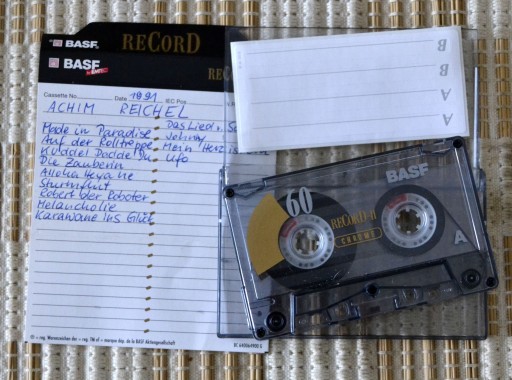 BASF RECORD
BASF
RECO
Cassette No. Date 1991 IEC Pos.
ACHIM REICHEL
Made in Paradise Das Lied v. Sc
Auf der Rolltreppe Johnny
Kuddel Daddel Du Mein Herz is
Die Zauberin Ufo
Alloha Heya He
Sturmflut
Robert der Roboter
Melancholie
Karawane ins Glück
B
B
A
A
BASF
60 RECORD II
CHROME
A